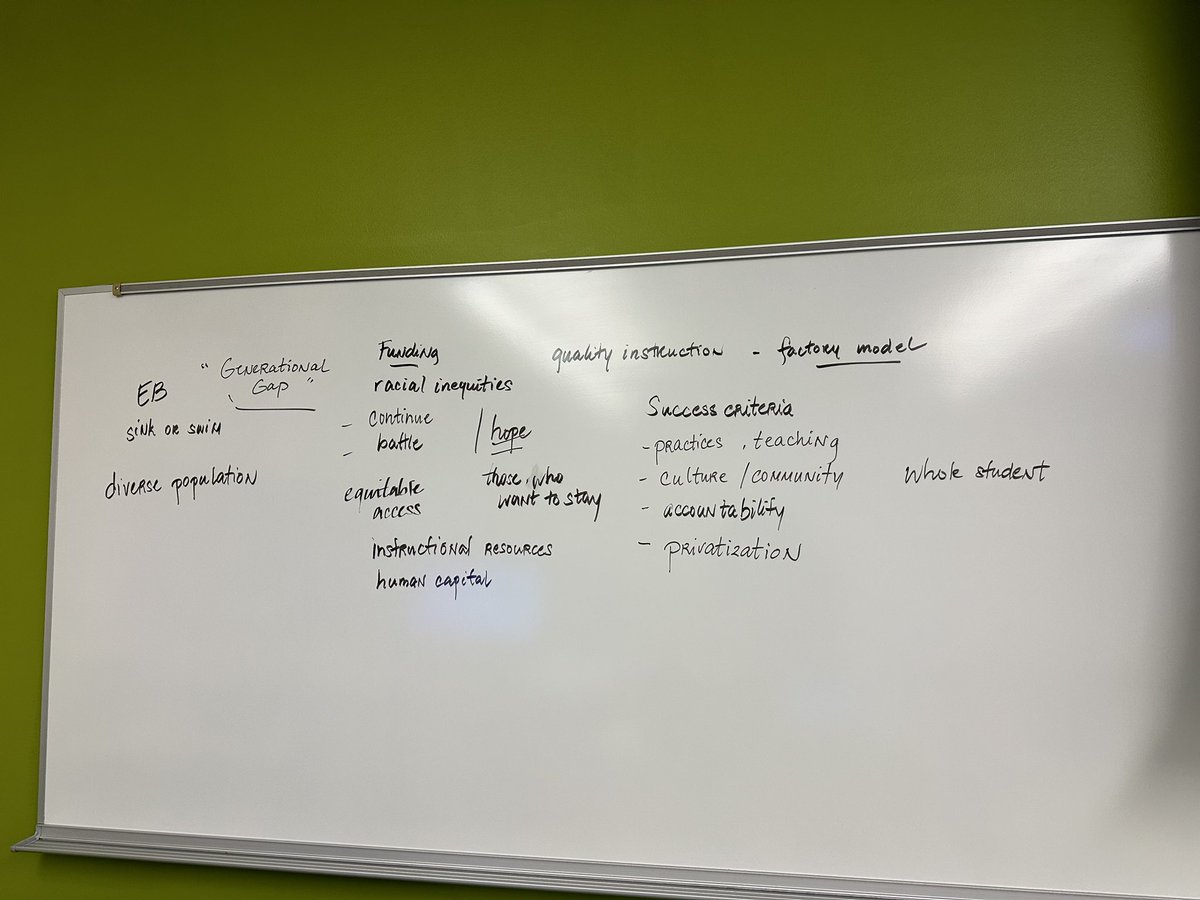 EB
sink or swim
diverse population
"Generational
Gap"
Funding
racial inequities
- continue
- battle
/ hope
equitable
access
those, who
want to stay
instructional resources
human capital
quality instruction - factory model
Success criteria
- practices, teaching
- culture / community
- accountability
- privatization
whole student